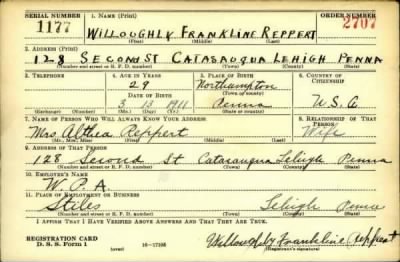 SERIAL NUMBER 1. NAME (Print) ORDER NUMBER
1177 WILLOUGHLY FRANKLINE REPPERT 2707
(First) (Middle) (Last)
2. ADDRESS (Print)
128 SECOND ST CATASAUQUA LEHIGH PENNA
(Number and street or R. F. D. number) (Town) (County) (State)
3. TELEPHONE 4. AGE IN YEARS 5. PLACE OF BIRTH 6. COUNTRY OF CITIZENSHIP
29 Northampton
DATE OF BIRTH (Town or county)
3 13 1911 Penna U.S.A.
(Exchange) (Number) (Mo.) (Day) (Yr.) (State or country)
7. NAME OF PERSON WHO WILL ALWAYS KNOW YOUR ADDRESS 8. RELATIONSHIP OF THAT PERSON
Mrs Althea Reppert Wife
(Mr., Mrs., Miss) (First) (Middle) (Last)
9. ADDRESS OF THAT PERSON
128 Second St Catasauqua Lehigh Penna
(Number and street or R. F. D. number) (Town) (County) (State)
10. EMPLOYER'S NAME
W. P. A.
11. PLACE OF EMPLOYMENT OR BUSINESS
Stiles Lehigh Penna
(Number and street or R. F. D. number) (Town) (County) (State)
I AFFIRM THAT I HAVE VERIFIED ABOVE ANSWERS AND THAT THEY ARE TRUE.
REGISTRATION CARD
D. S. S. Form 1 (over) 16-17105 Willoughby Frankline Reppert
(Registrant's signature)